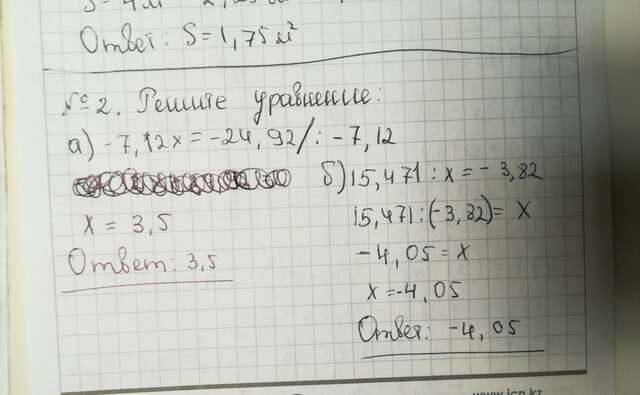 Ответ: S=1,75 м²
№2. Решите уравнение:
а) -7,12x = -24,92/: -7,12
x = 3,5
Ответ: 3,5
б) 15,471 : x = -3,82
15,471 : (-3,82) = x
-4,05 = x
x = -4,05
Ответ: -4,05